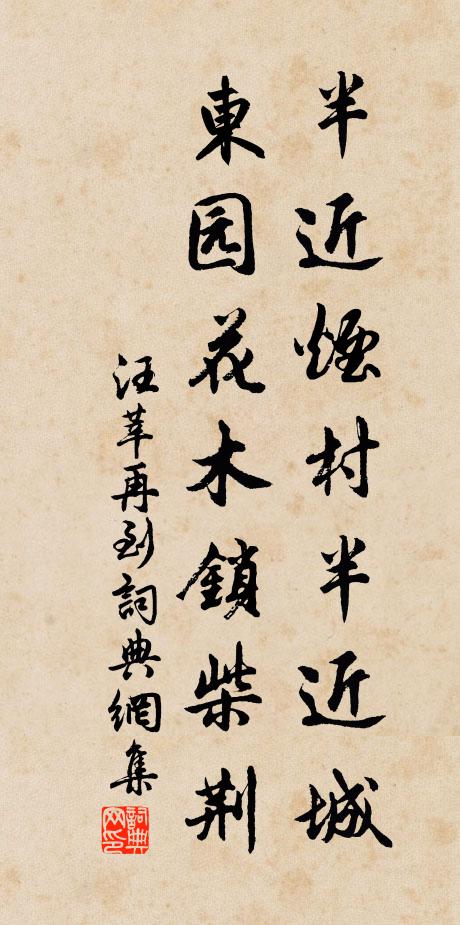 半近煙村半近城
東园花木鎖柴荆
汪莘再到詞典網集
詞典网印